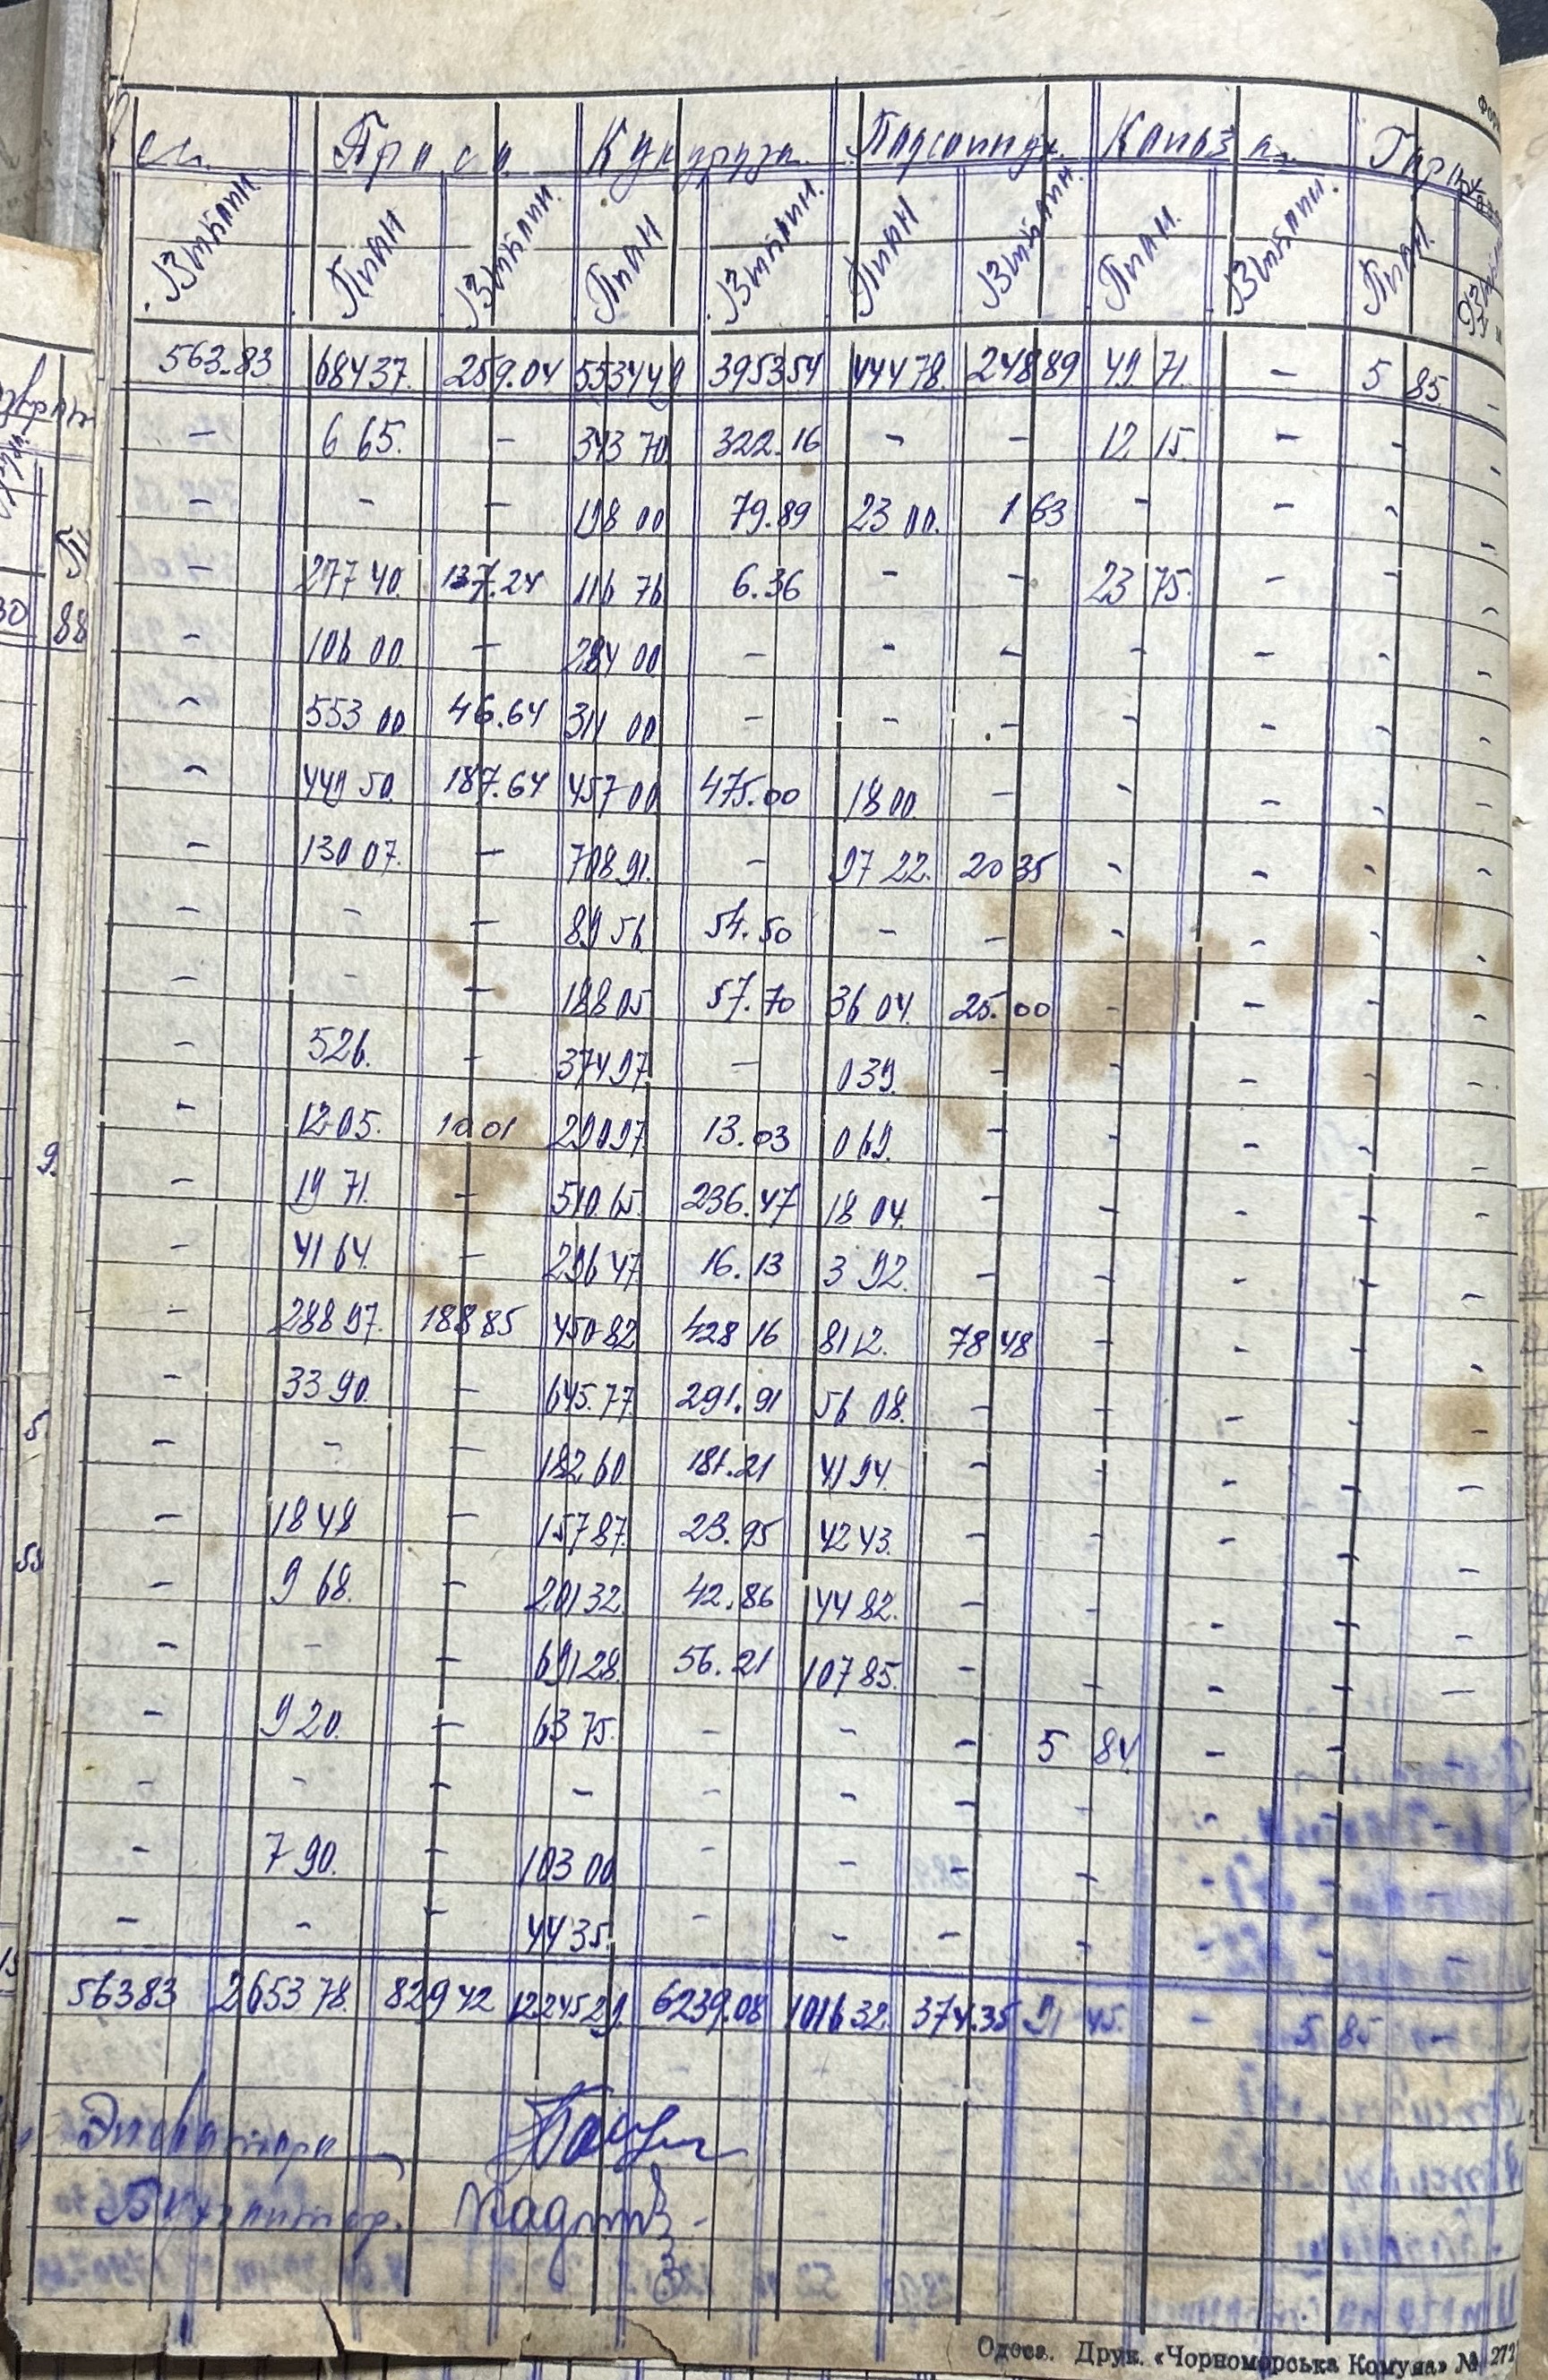 Просо Кукурудза Подсоннух
Виконан. План Виконан. План Виконан. План Виконан. План. Виконан. План.
563.83 684 37. 259.04 5534 49 3953 54 444 78. 248 89 49 71. - 5 85 -
- 6 65. - 343 70 322.16 - - 12 15. - - -
- - - 198 00 79.89 23 00. 1 63 - - - -
- 277 40. 137.24 116 76 6.36 - - 23 75. - - -
- 106 00 - 284 00 - - - - - - -
- 553 00 46.64 311 00 - - - - - - -
- 449 50. 187.64 457 00 475.00 18 00. - - - - -
- 130 07. - 708 91. - 97 22. 20 35 - - - -
- - - 89 56 54.50 - - - - - -
- - - 188 05 57.70 36 04. 25.00 - - - -
- 5 26. - 374 97. - 0 39. - - - -
- 12 05. 10 01 290 97. 13.03 0 69. - - - -
- 19 71. - 510 65. 236.47 18 04. - - - - -
- 41 64. - 296 47 16.13 3 92. - - - - -
- 288 97. 188 85 450 82 428 16 81 12. 78 48 - - - -
- 33 90. - 645.77 291.91 56 08. - - - - -
- - - 182 60. 181.21 41 94. - - - - -
- 18 48 - 157 87. 23.95 42 43. - - - - -
- 9 68. - 201 32. 42.86 44 82. - - - - -
- - - 691 28. 56.21 107 85. - - - - -
- 9 20. - 63 75. - - - 5 84. - - -
- - - - - - - - - - -
- 7 90. - 103 00 - - - - - - -
- - - 44 35. - - - - - - -
563 83 2653 78. 829 42 12245 29. 6239.08 1016 32. 374.35 91 45. - 5 85 -
Бухгалтер.
Одеса. Друк. «Чорноморська Комуна» № 272